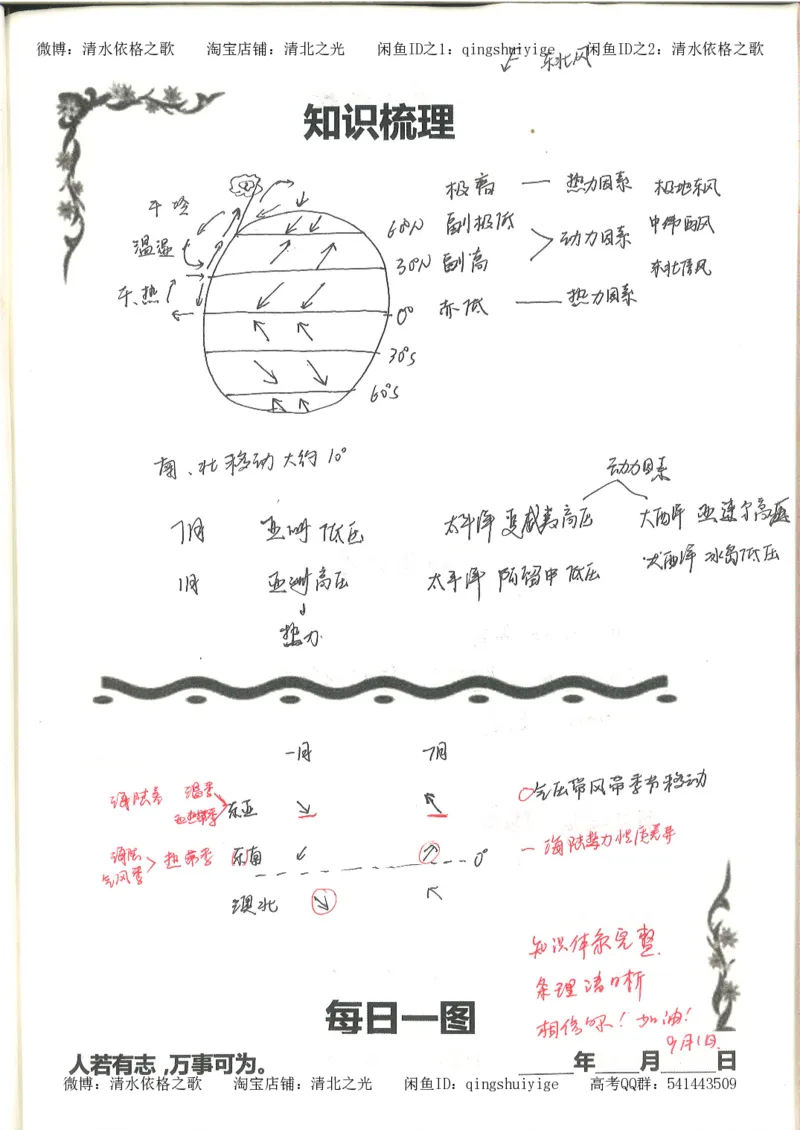 微博：清水依格之歌 淘宝店铺：清北之光 闲鱼ID之1：qingshuiyige 闲鱼ID之2：清水依格之歌
东北风
知识梳理
极高 — 热力因素 极地东风
60°N 副极低 动力因素 中纬西风
温湿
30°N 副高 东北信风
干、热
0° 赤低 —— 热力因素
30°S
60°S
南、北移动大约10°
动力因素
7月 亚洲低压 太平洋 夏威夷高压 大西洋 亚速尔高压
1月 亚洲高压 太平洋 阿留申低压 大西洋 冰岛低压
热力
一月 7月
气压带风带季节移动
海陆差 温季 东亚
亚热带季
一海陆热力性质差异
海陆 热带季 东南 0°
气风季
澳北
知识体系完整
条理清晰
相信你！加油！
9月1日
每日一图
人若有志，万事可为。 ____年____月____日
微博：清水依格之歌 淘宝店铺：清北之光 闲鱼ID：qingshuiyige 高考QQ群：541443509